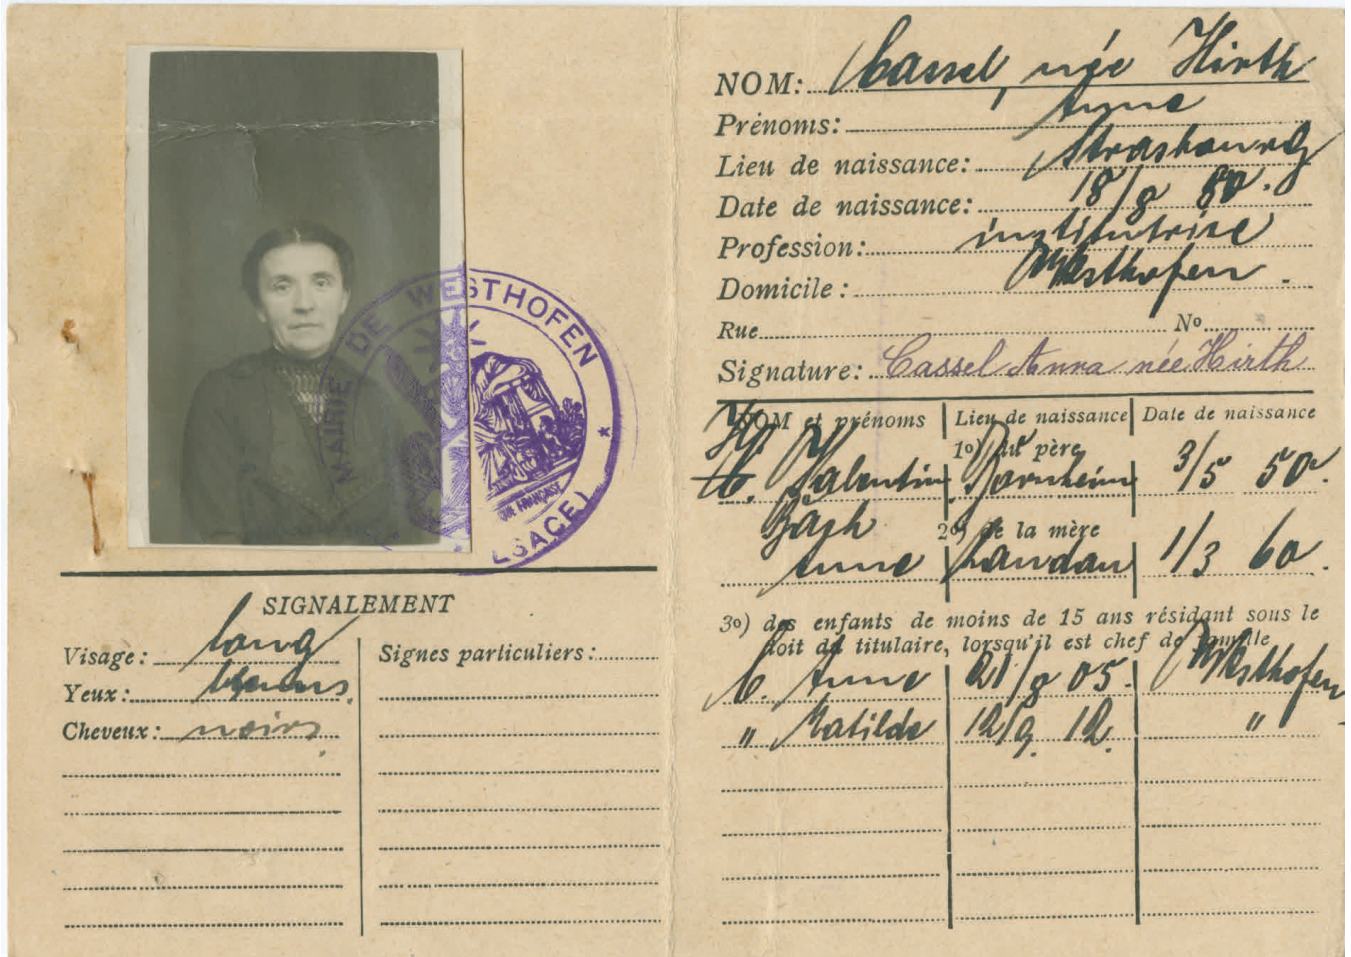 MAIRIE DE WESTHOFEN
(ALSACE)
SIGNALEMENT
Visage: long
Yeux: bruns.
Cheveux: noirs.
Signes particuliers:
NOM: Cassel, née Hirth
Prénoms: Anne
Lieu de naissance: Strasbourg
Date de naissance: 18/8 80.
Profession: institutrice
Domicile: Westhofen.
Rue Nº
Signature: Cassel Anna née Hirth
NOM et prénoms Lieu de naissance Date de naissance
1º) du père
H. Valentin Bornheim 3/5 50.
2º) de la mère
Anne Landau 1/3 60.
3º) des enfants de moins de 15 ans résidant sous le
toit du titulaire, lorsqu'il est chef de famille
C. Anne 21/8 05. Westhofen
" Matilde 12/9. 12. "